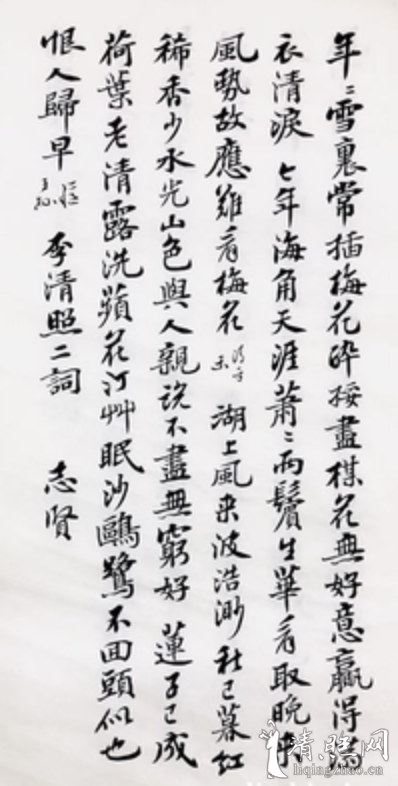 年〻雪裏常插梅花醉挼盡楳花無好意贏得滿
衣清淚 今年海角天涯蕭〻兩鬢生華看取晚來
風勢故應難看梅花 清平樂 湖上風来波浩渺秋已暮紅
稀香少水光山色與人親說不盡無窮好 蓮子已成
荷葉老清露洗蘋花汀艸眠沙鷗鷺不回頭似也
恨人歸早 憶王孫 李清照二詞 志賢
liqingzhao.cn